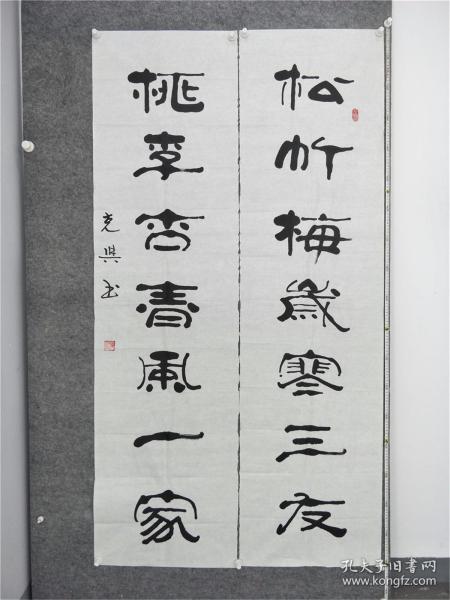 松竹梅歲寒三友
桃李杏春風一家
克興书
孔夫子旧书网
www.kongfz.com